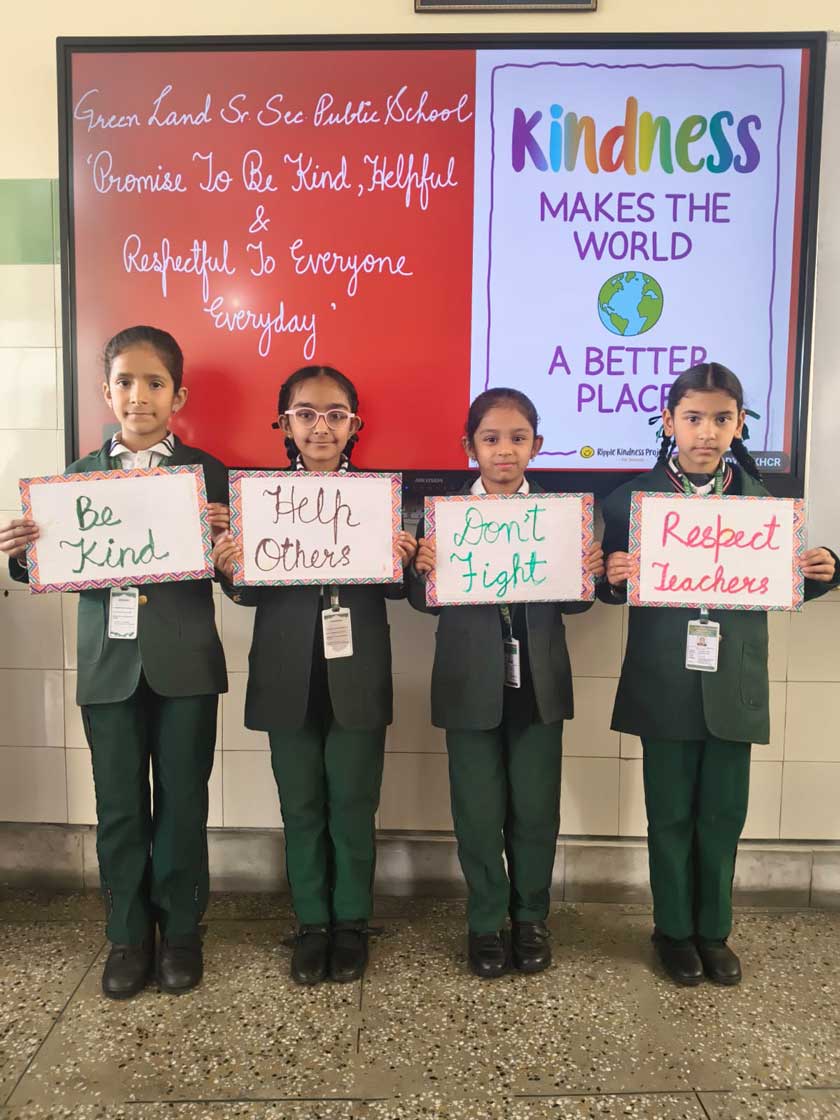 Green Land Sr. Sec. Public School
'Promise To Be Kind, Helpful
&
Respectful To Everyone
Everyday'
Kindness
MAKES THE
WORLD
A BETTER
PLACE
Ripple Kindness Project
HIKVISION
Be
Kind
Help
Others
Don't
Fight
Respect
Teachers